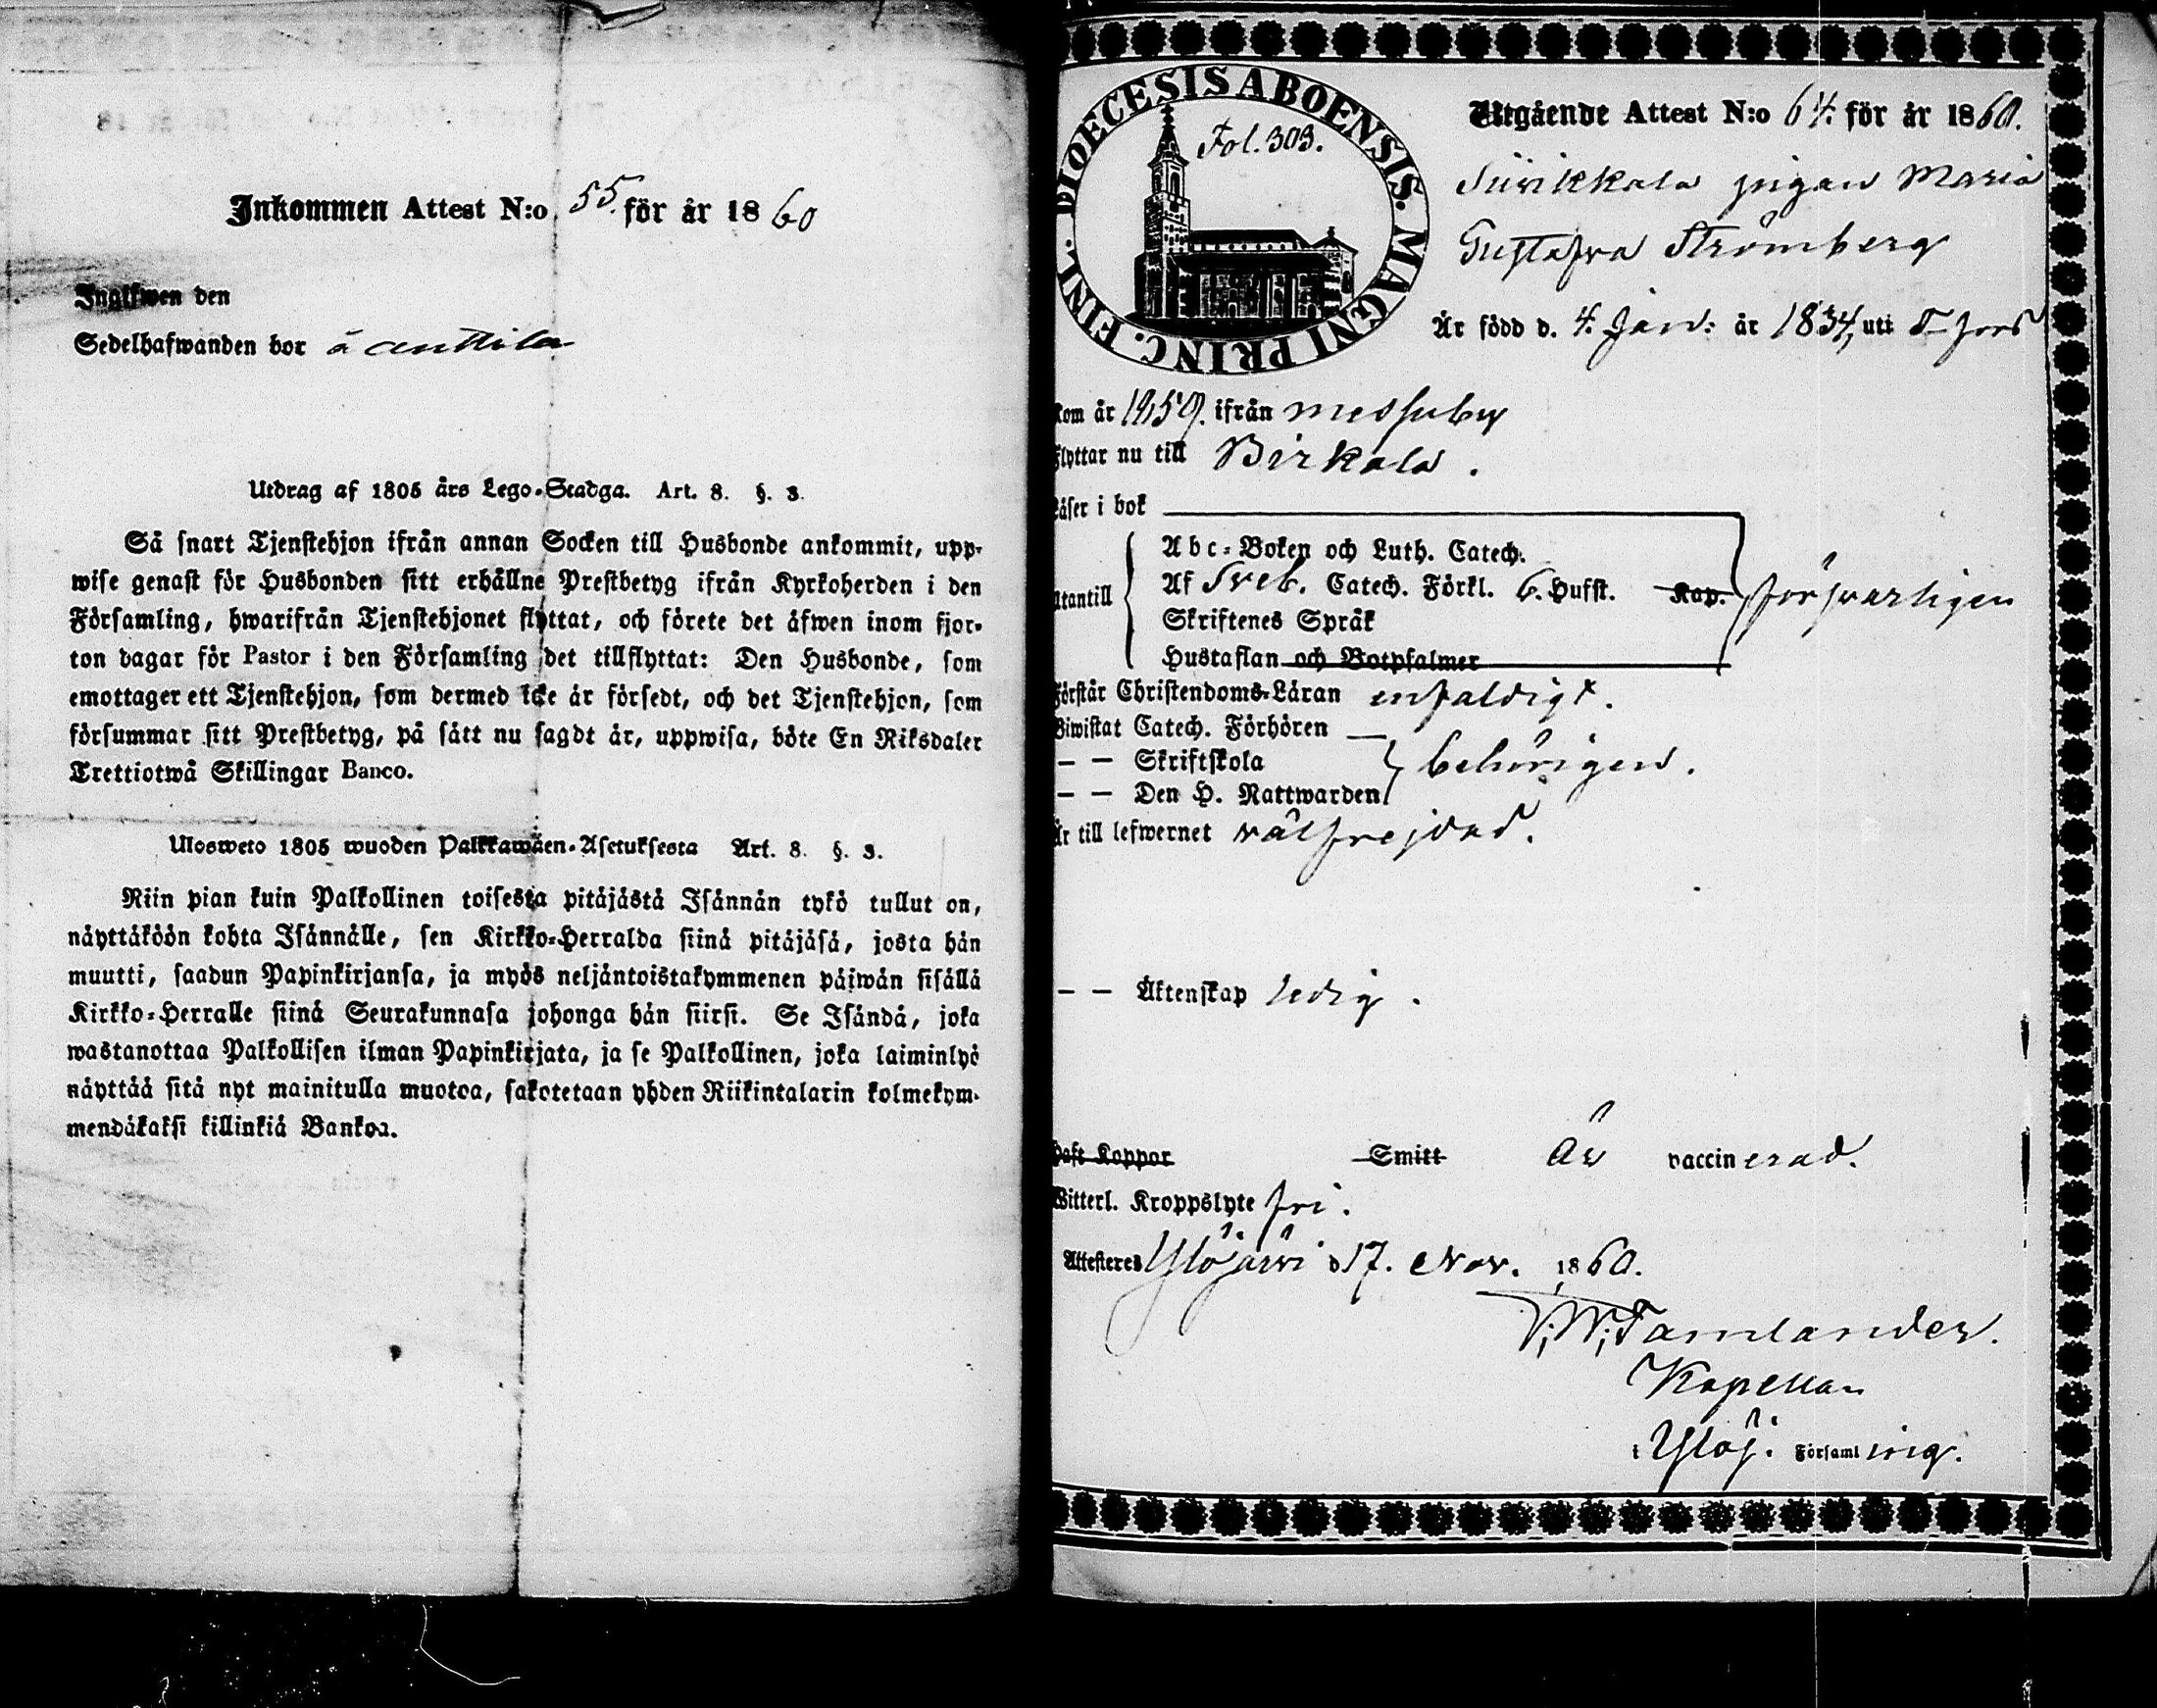 Inkommen Attest N:o 55. för år 1860
Ingifwen den
Sedelhafwanden bor å Anttila
Utdrag af 1805 års Lego-Stadga. Art. 8. §. 3.
Så snart Tjenstehjon ifrån annan Socken till Husbonde ankommit, upp-
wise genast för Husbonden sitt erhållne Prestbetyg ifrån Kyrkoherden i den
Församling, hwarifrån Tjenstehjonet flyttat, och förete det äfwen inom fjor-
ton dagar för Pastor i den Församling det tillflyttat: Den Husbonde, som
emottager ett Tjenstehjon, som dermed icke är försedt, och det Tjenstehjon, som
försummar sitt Prestbetyg, på sätt nu sagdt är, uppwisa, böte En Riksdaler
Trettiotwå Skillingar Banco.
Ulosweto 1805 wuoden Palkkawäen-Asetuksesta Art. 8. §. 3.
Niin pian kuin Palkollinen toisesta pitäjästä Isännän tykö tullut on,
näyttäköön kohta Isännälle, sen Kirkko-Herralda siinä pitäjäsä, josta hän
muutti, saadun Papinkirjansa, ja myös neljäntoistakymmenen päiwän sisällä
Kirkko-Herralle siinä Seurakunnasa johonga hän siirsi. Se Isändä, joka
wastanottaa Palkollisen ilman Papinkirjata, ja se Palkollinen, joka laiminlyö
näyttää sitä nyt mainitulla muotoa, sakotetaan yhden Riikintalarin kolmekym-
mendäkaksi killinkiä Bankoa.
DIOECESIS ABOENSIS. MAGNI PRINC. FINL.
Fol. 303.
Utgående Attest N:o 64. för år 1860.
Siivikkala pigan Maria
Gustafva Strömberg
Är född d. 4. Jan: år 1834, uti
kom år 1859. ifrån Messuby
flyttar nu till Birkala.
Läser i bok
Abc-Boken och Luth. Catech.
Utantill Af Sveb. Catech. Förkl. 6. Hufst. Kap. försvarligen
Skriftenes Språk
Hustaflan och Botpsalmer
Förstår Christendoms-Läran enfaldigt.
Biwistat Catech. Förhören
— — Skriftskola behörigen.
— — Den H. Nattwarden
Är till lefwernet välfrejdad.
— — Äktenskap ledig.
Haft Koppor Smitt Är vaccinerad.
Witterl. Kroppslyte fri.
Attesteres Ylöjärvi d 17. Nov. 1860.
V. W. Tamlander.
Kapellan
i Ylöj. Församling.